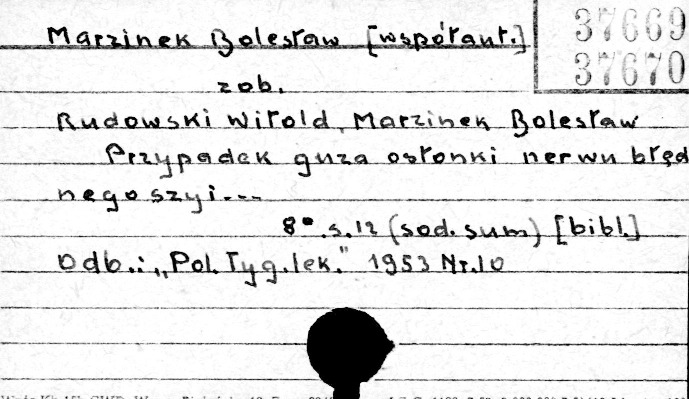 Marzinek Bolesław [współaut.]
37669
37670
zob.
Rudowski Witold, Marzinek Bolesław
Przypadek guza osłonki nerwu błęd
nego szyi---
8° .s.12 (sod. sum) [bibl.]
Odb.: „Pol. Tyg. lek." 1953 Nr.10